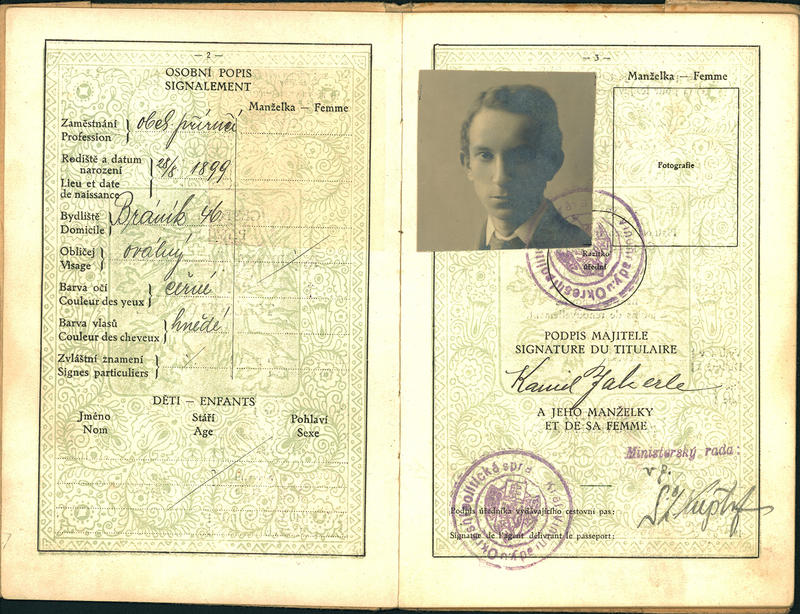 — 2 —
OSOBNÍ POPIS
SIGNALEMENT
Manželka — Femme
Zaměstnání
Profession
Rodiště a datum
narození
Lieu et date
de naissance
28/8 1899
Bydliště
Domicile
Bráník 46
Obličej
Visage
oválný
Barva očí
Couleur des yeux
černé
Barva vlasů
Couleur des cheveux
hnědé
Zvláštní znamení
Signes particuliers
DĚTI — ENFANTS
Jméno Stáří Pohlaví
Nom Age Sexe
— 3 —
Manželka — Femme
Fotografie
Razítko
úřední
PODPIS MAJITELE
SIGNATURE DU TITULAIRE
Kamil
A JEHO MANŽELKY
ET DE SA FEMME
Ministerský rada:
v z.
Podpis úředníka vydávajícího cestovní pas:
Signature de l'agent délivrant le passeport: